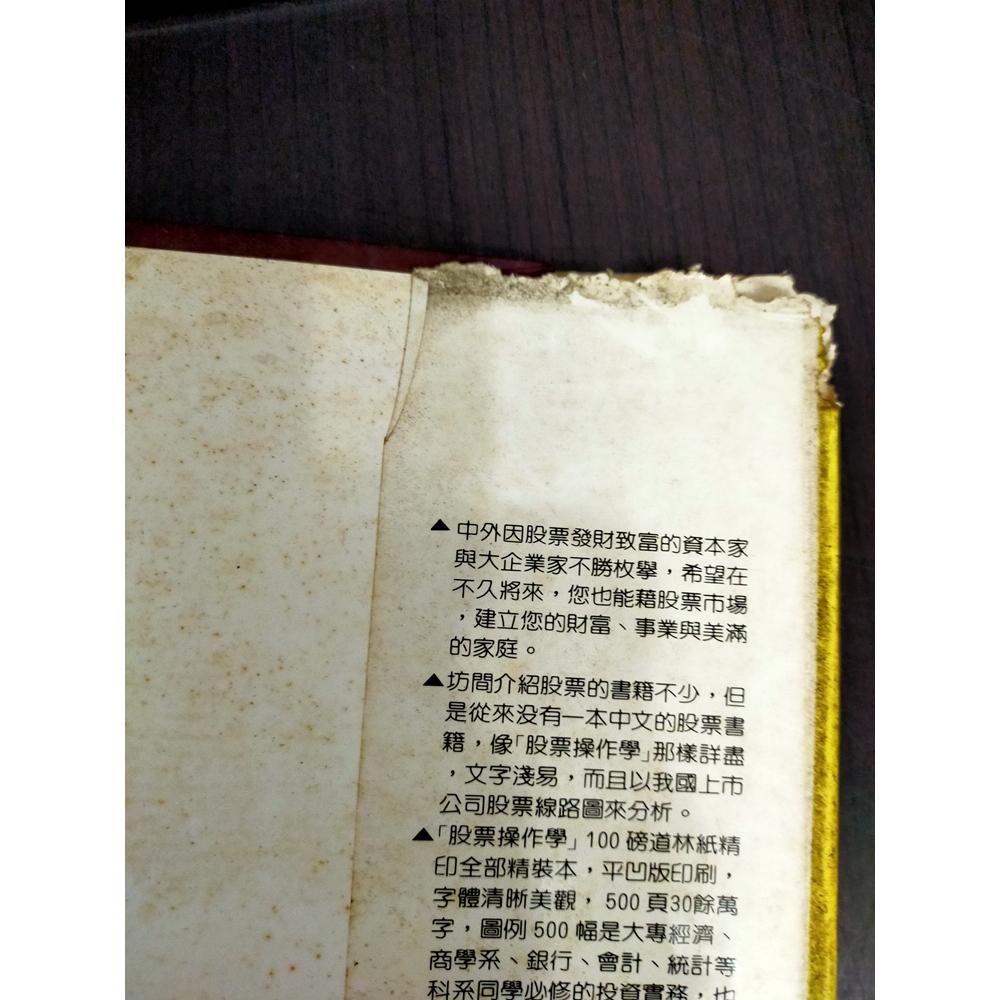 ▲中外因股票發財致富的資本家
與大企業家不勝枚舉，希望在
不久將來，您也能藉股票市場
，建立您的財富、事業與美滿
的家庭。
▲坊間介紹股票的書籍不少，但
是從來没有一本中文的股票書
籍，像「股票操作學」那樣詳盡
，文字淺易，而且以我國上市
公司股票線路圖來分析。
▲「股票操作學」100磅道林紙精
印全部精裝本，平凹版印刷，
字體清晰美觀，500頁30餘萬
字，圖例500幅是大專經濟、
商學系、銀行、會計、統計等
科系同學必修的投資實務，也